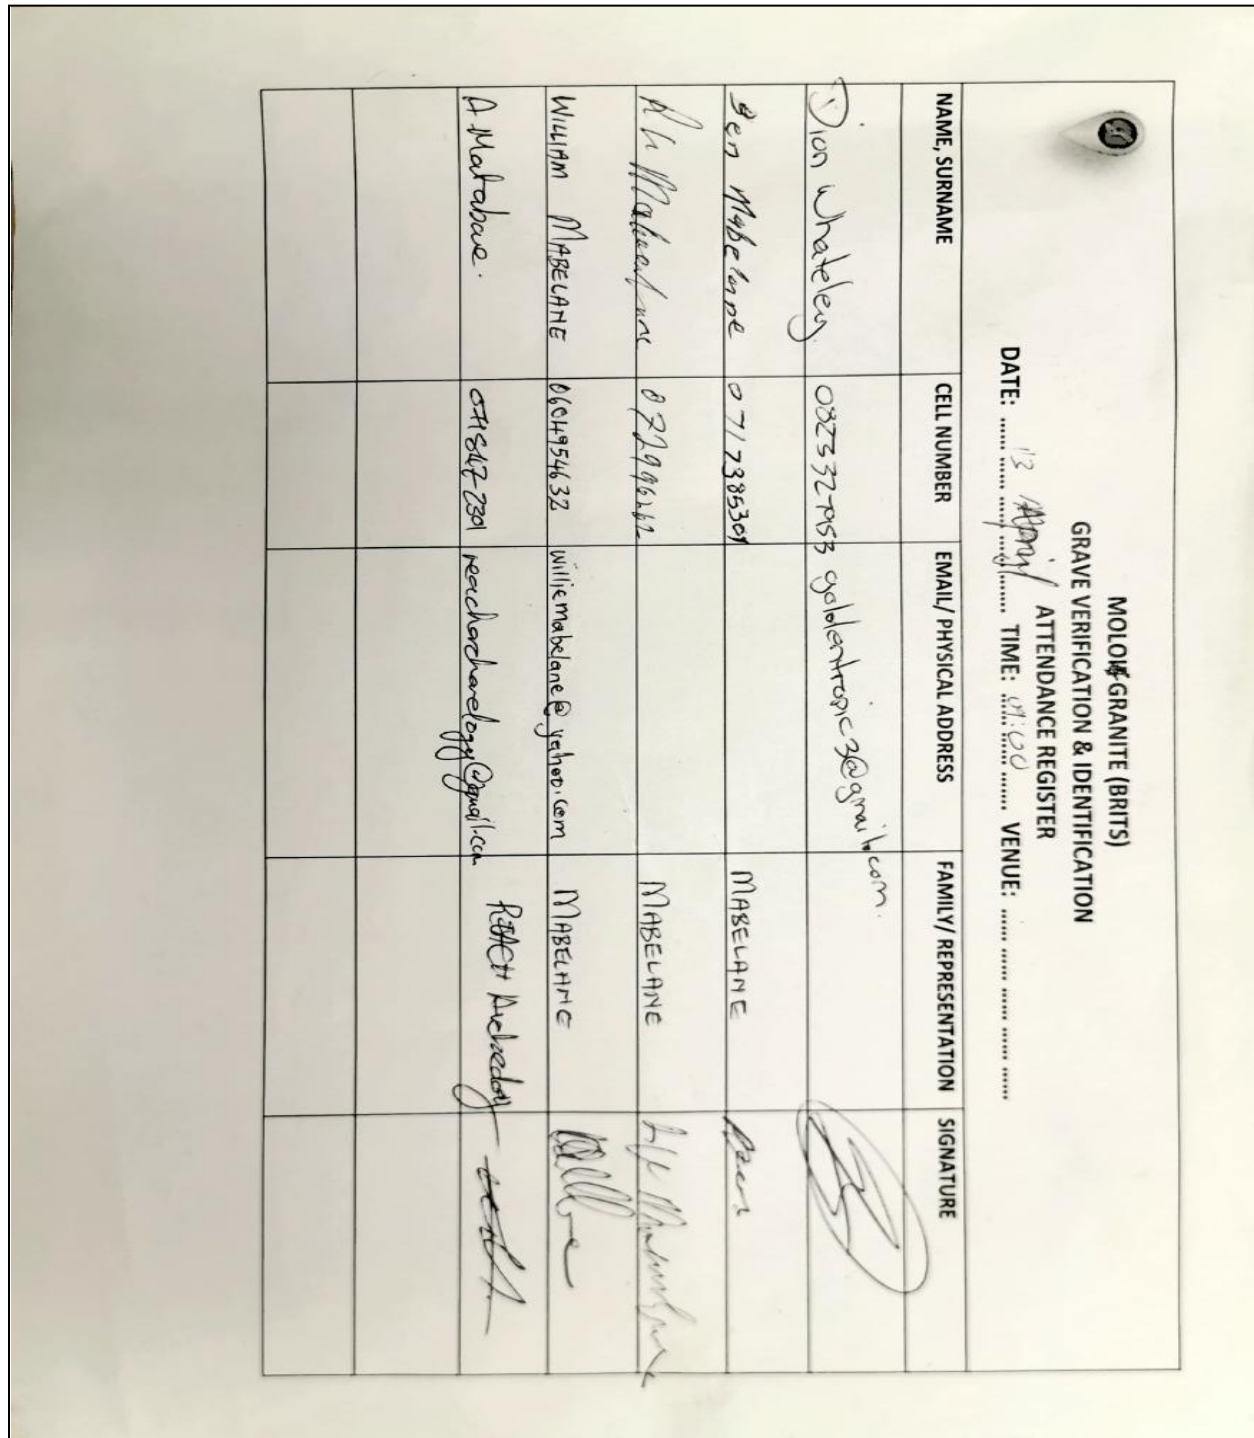 MOLOI GRANITE (BRITS)
GRAVE VERIFICATION & IDENTIFICATION
ATTENDANCE REGISTER
DATE: ...... 13 April ...... TIME: ...... 09:00 ...... VENUE: ...... ...... ...... ...... ......
NAME, SURNAME CELL NUMBER EMAIL/ PHYSICAL ADDRESS FAMILY/ REPRESENTATION SIGNATURE
Dion Whateley 0823327953 goldentropic3@gmail.com.
Ben Mabelane 0717385301 MABELANE Ben
MABELANE
WILLIAM MABELANE 0604954632 williemabelane@yahoo.com MABELANE
A Matabane. reacharchaeology@gmail.com REACH Archaeology